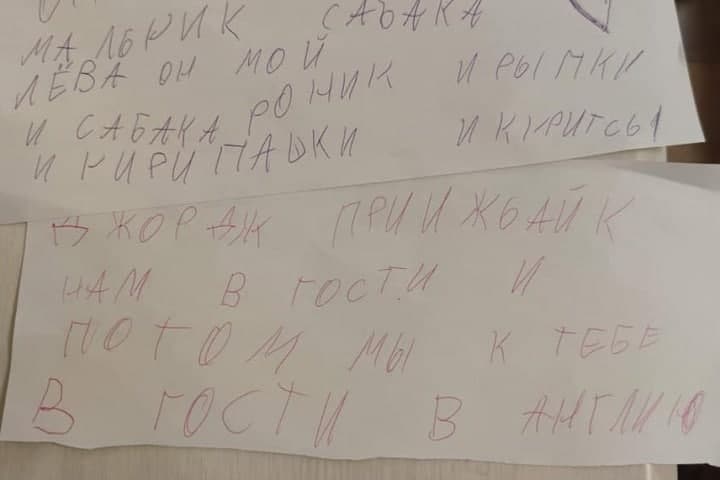 МАЛЬЧИК САБАКА
ЛЁВА ОН МОЙ
И САБАКА РОНИК И РЫПКИ
И ЧИРИПАШКИ И КУРИТСЫ
ДЖОРДЖ ПРИИЖБАЙ К
НАМ В ГОСТИ И
ПОТОМ МЫ К ТЕБЕ
В ГОСТИ В АНГЛИЮ